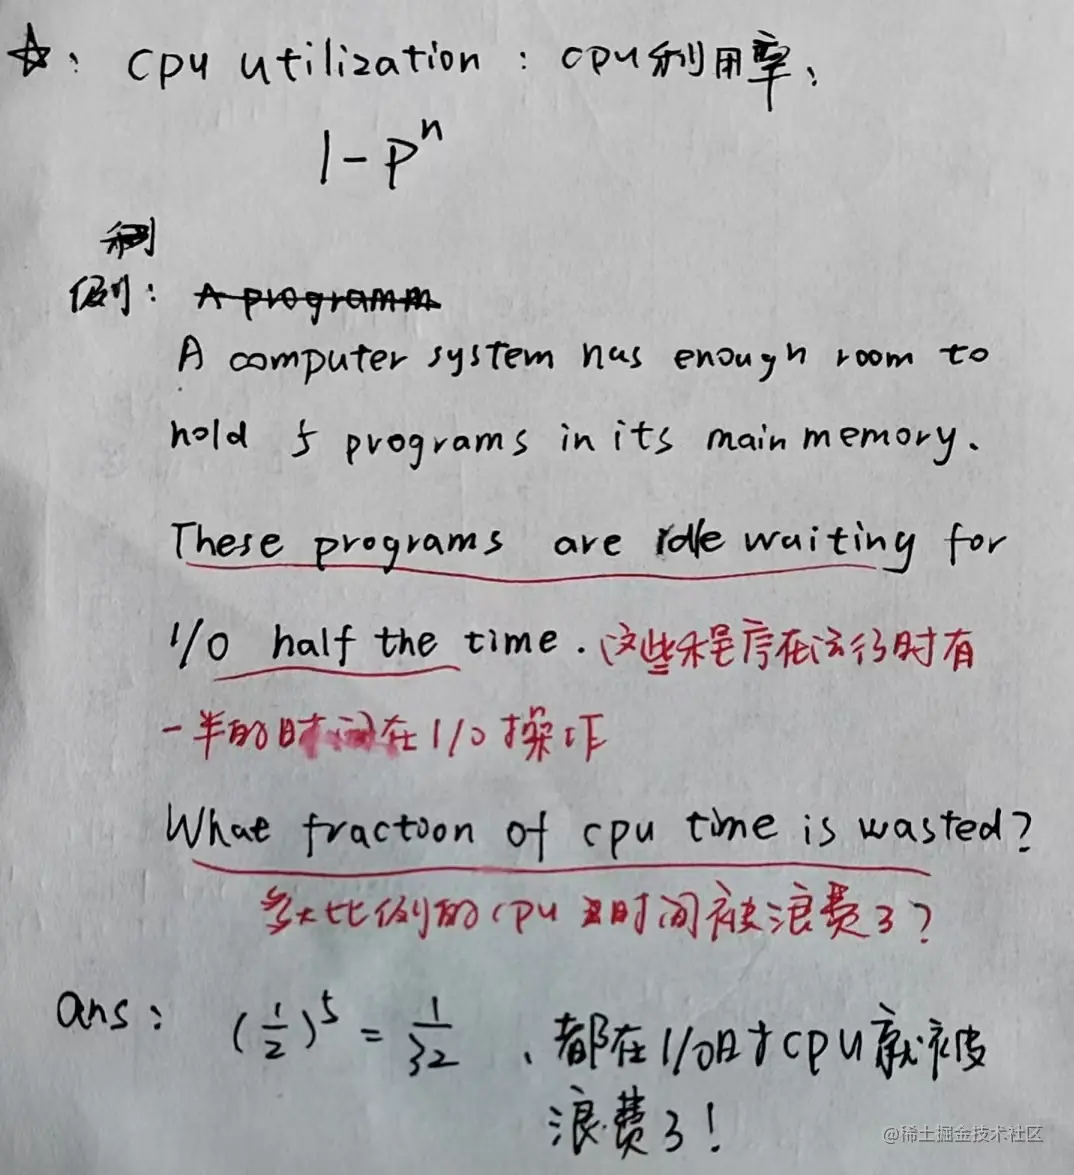 ☆: cpu utilization: cpu利用率:
1-pⁿ
例: A programm
A computer system has enough room to
hold 5 programs in its main memory.
These programs are idle waiting for
I/O half the time. 这些程序在运行时有
一半的时间在 I/O 操作
What fractoon of cpu time is wasted?
多大比例的 cpu 时间被浪费了?
ans: (1/2)⁵ = 1/32 、都在I/O时cpu就被
浪费了!
@稀土掘金技术社区